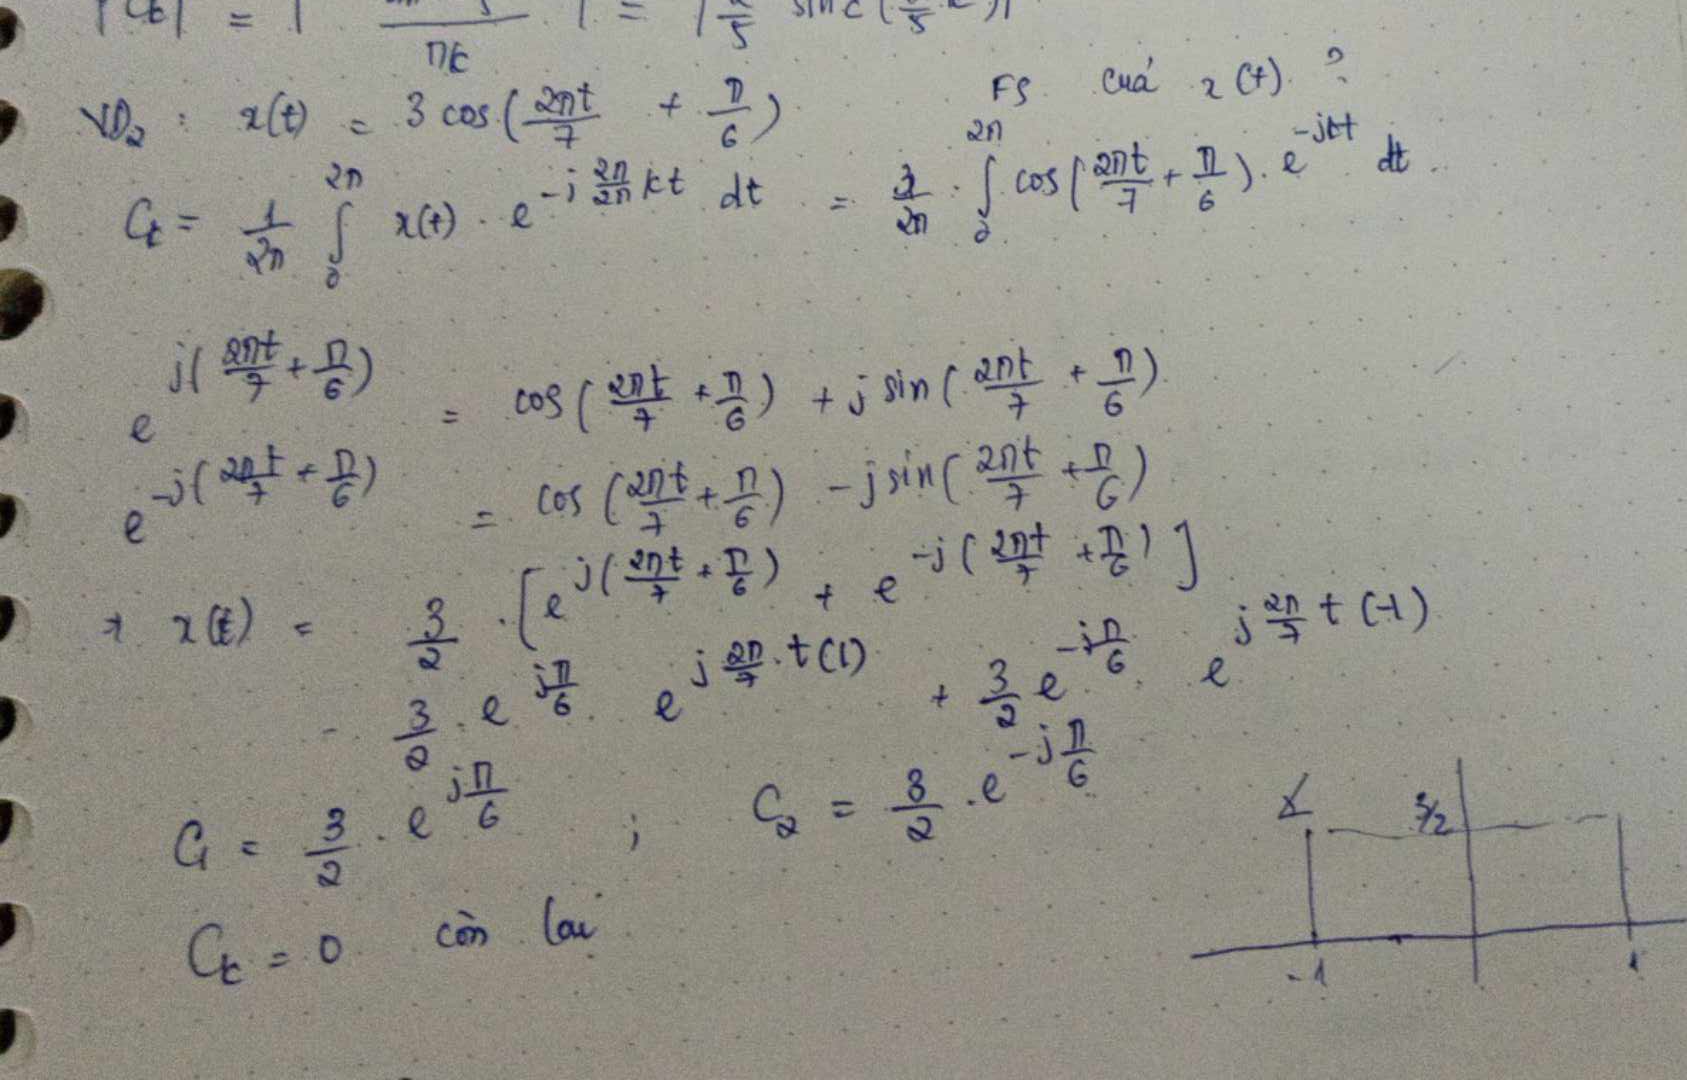 |C_k| = | / πk | = | /5 sinc( /5 k)|
VD₂ : x(t) = 3 cos(2πt/7 + π/6) FS của x(t) ?
C_k = 1/2π ∫₀^2π x(t) · e^(-j 2π/2π kt) dt = 3/2π · ∫₀^2π cos(2πt/7 + π/6) · e^(-jkt) dt
e^(j(2πt/7 + π/6)) = cos(2πt/7 + π/6) + j sin(2πt/7 + π/6)
e^(-j(2πt/7 + π/6)) = cos(2πt/7 + π/6) - j sin(2πt/7 + π/6)
x(t) = 3/2 · [e^(j(2πt/7 + π/6)) + e^(-j(2πt/7 + π/6))]
3/2 · e^(jπ/6) e^(j 2π/7 · t(1)) + 3/2 e^(-jπ/6) · e^(j 2π/7 t(-1))
C₁ = 3/2 · e^(jπ/6) ; C₂ = 3/2 · e^(-jπ/6)
3/2
C_k = 0 còn lại
-1 1